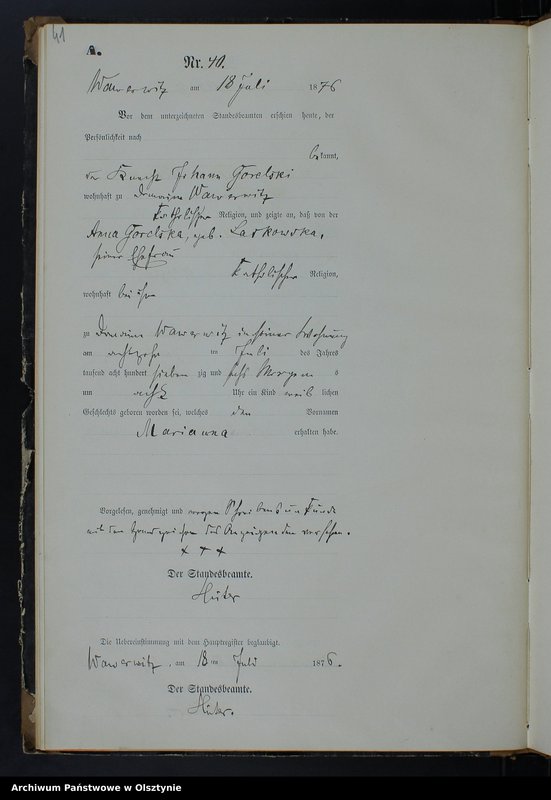 41
A.
Nr. 40.
Wawerwitz am 18 Juli 1876
Vor dem unterzeichneten Standesbeamten erschien heute, der
Persönlichkeit nach
bekannt,
der Knecht Johann Gorelski
wohnhaft zu Domaine Wawerwitz
katholischer Religion, und zeigte an, daß von der
Anna Gorelska, geb. Laskowska,
seiner Ehefrau
katholischer Religion,
wohnhaft bei ihm
zu Domaine Wawerwitz in seiner Wohnung
am achtzehn ten Juli des Jahres
tausend acht hundert sieben zig und sechs Morgens
um acht Uhr ein Kind weiblichen
Geschlechts geboren worden sei, welches den Vornamen
Marianna erhalten habe.
Vorgelesen, genehmigt und wegen Schreibensunkunde
mit den Handzeichen des Anzeigenden versehen.
+ + +
Der Standesbeamte.
Hüter
Die Uebereinstimmung mit dem Hauptregister beglaubigt.
Wawerwitz, am 18 ten Juli 1876.
Der Standesbeamte.
Hüter.
Archiwum Państwowe w Olsztynie